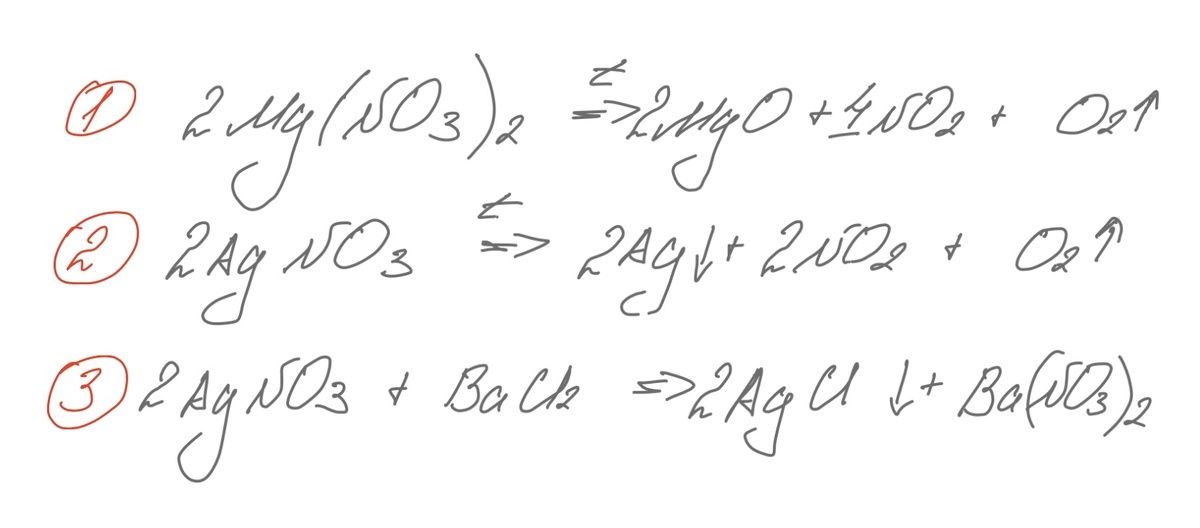 ① 2Mg(NO₃)₂ =t=> 2MgO + 4NO₂ + O₂↑
② 2AgNO₃ =t=> 2Ag↓ + 2NO₂ + O₂↑
③ 2AgNO₃ + BaCl₂ => 2AgCl ↓ + Ba(NO₃)₂